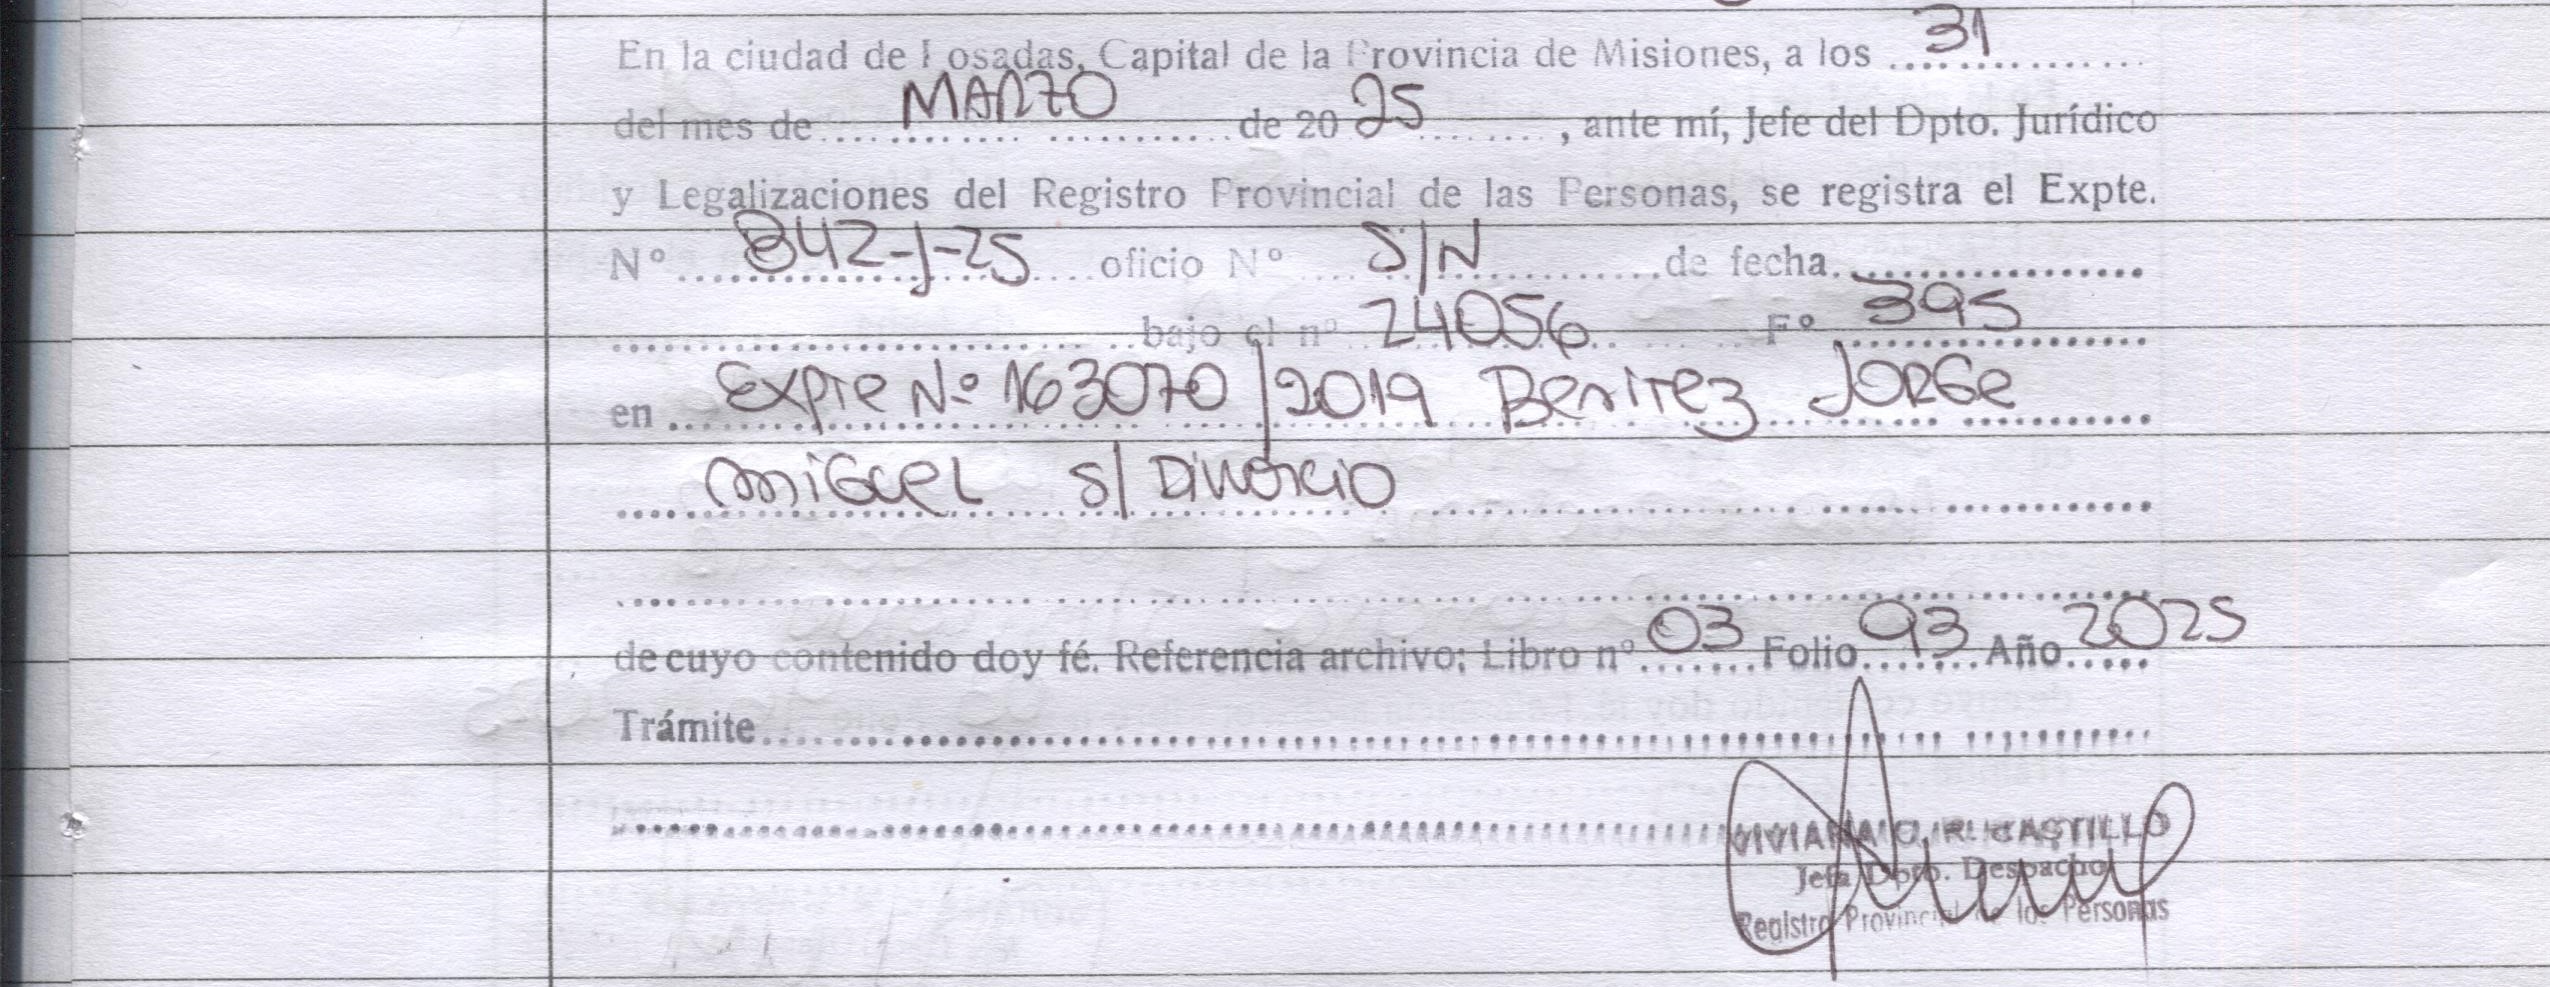 En la ciudad de Posadas, Capital de la Provincia de Misiones, a los 31
del mes de MARZO de 2025, ante mí, Jefe del Dpto. Jurídico
y Legalizaciones del Registro Provincial de las Personas, se registra el Expte.
Nº 842-J-25 oficio Nº S/N de fecha
bajo el nº 24056 Fº 395
en Expte Nº 163070/2019 Benitez Jorge
Miguel s/ Divorcio
de cuyo contenido doy fé. Referencia archivo; Libro nº 03 Folio 93 Año 2025
Trámite
VIVIANA R. CASTILLO
Jefa Dpto. Despacho
Registro Provincial de las Personas